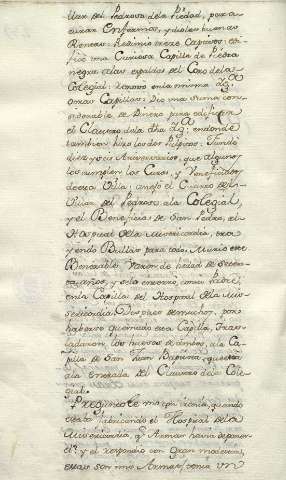 llar del Pedroso de la Piedad, para
curar Enfermos, y dioles buenas
Rentas. Redimio trece Captivos: edi-
ficó una Curiosa Capilla de Piedra
negra a las espaldas del Coro de la
Colegial: renovo en la misma Yg.ª
otras Capillas: Dio una suma con-
siderable de Dinero para edificar
el Claustro de la dha Yg.ª endonde
tambien hizo los dos Pulpitos: Fundo
diez y seis Aniversarios, que algunos
los cumplen los Curas, y Beneficiados
de esta Villa: anejo el Curato del
Pilar del Pedroso a la Colegial,
y el Beneficio de San Pedro, al
Hospital de la Misericordia, tra-
yendo Bullas para todo. Murio este
Venerable Varon de hedad de setenta
años, y se le enterro, como Pobre,
en la Capilla del Hospital de la Mise-
ricordia. Despues de muchos, por
haberse quemado esta Capilla, Tras-
ladaron, los huesos de ambos, a la Ca-
pilla de San Juan Baptista, que esta
a la entrada del Claustro de la Cole-
gial.
Preguntole una persona, quando
estaba fabricando el Hospital de la
Misericordia, q.e Armas havia de poner en
el? y el respondio con gran modestia,
essas son mis Armas, tenia un